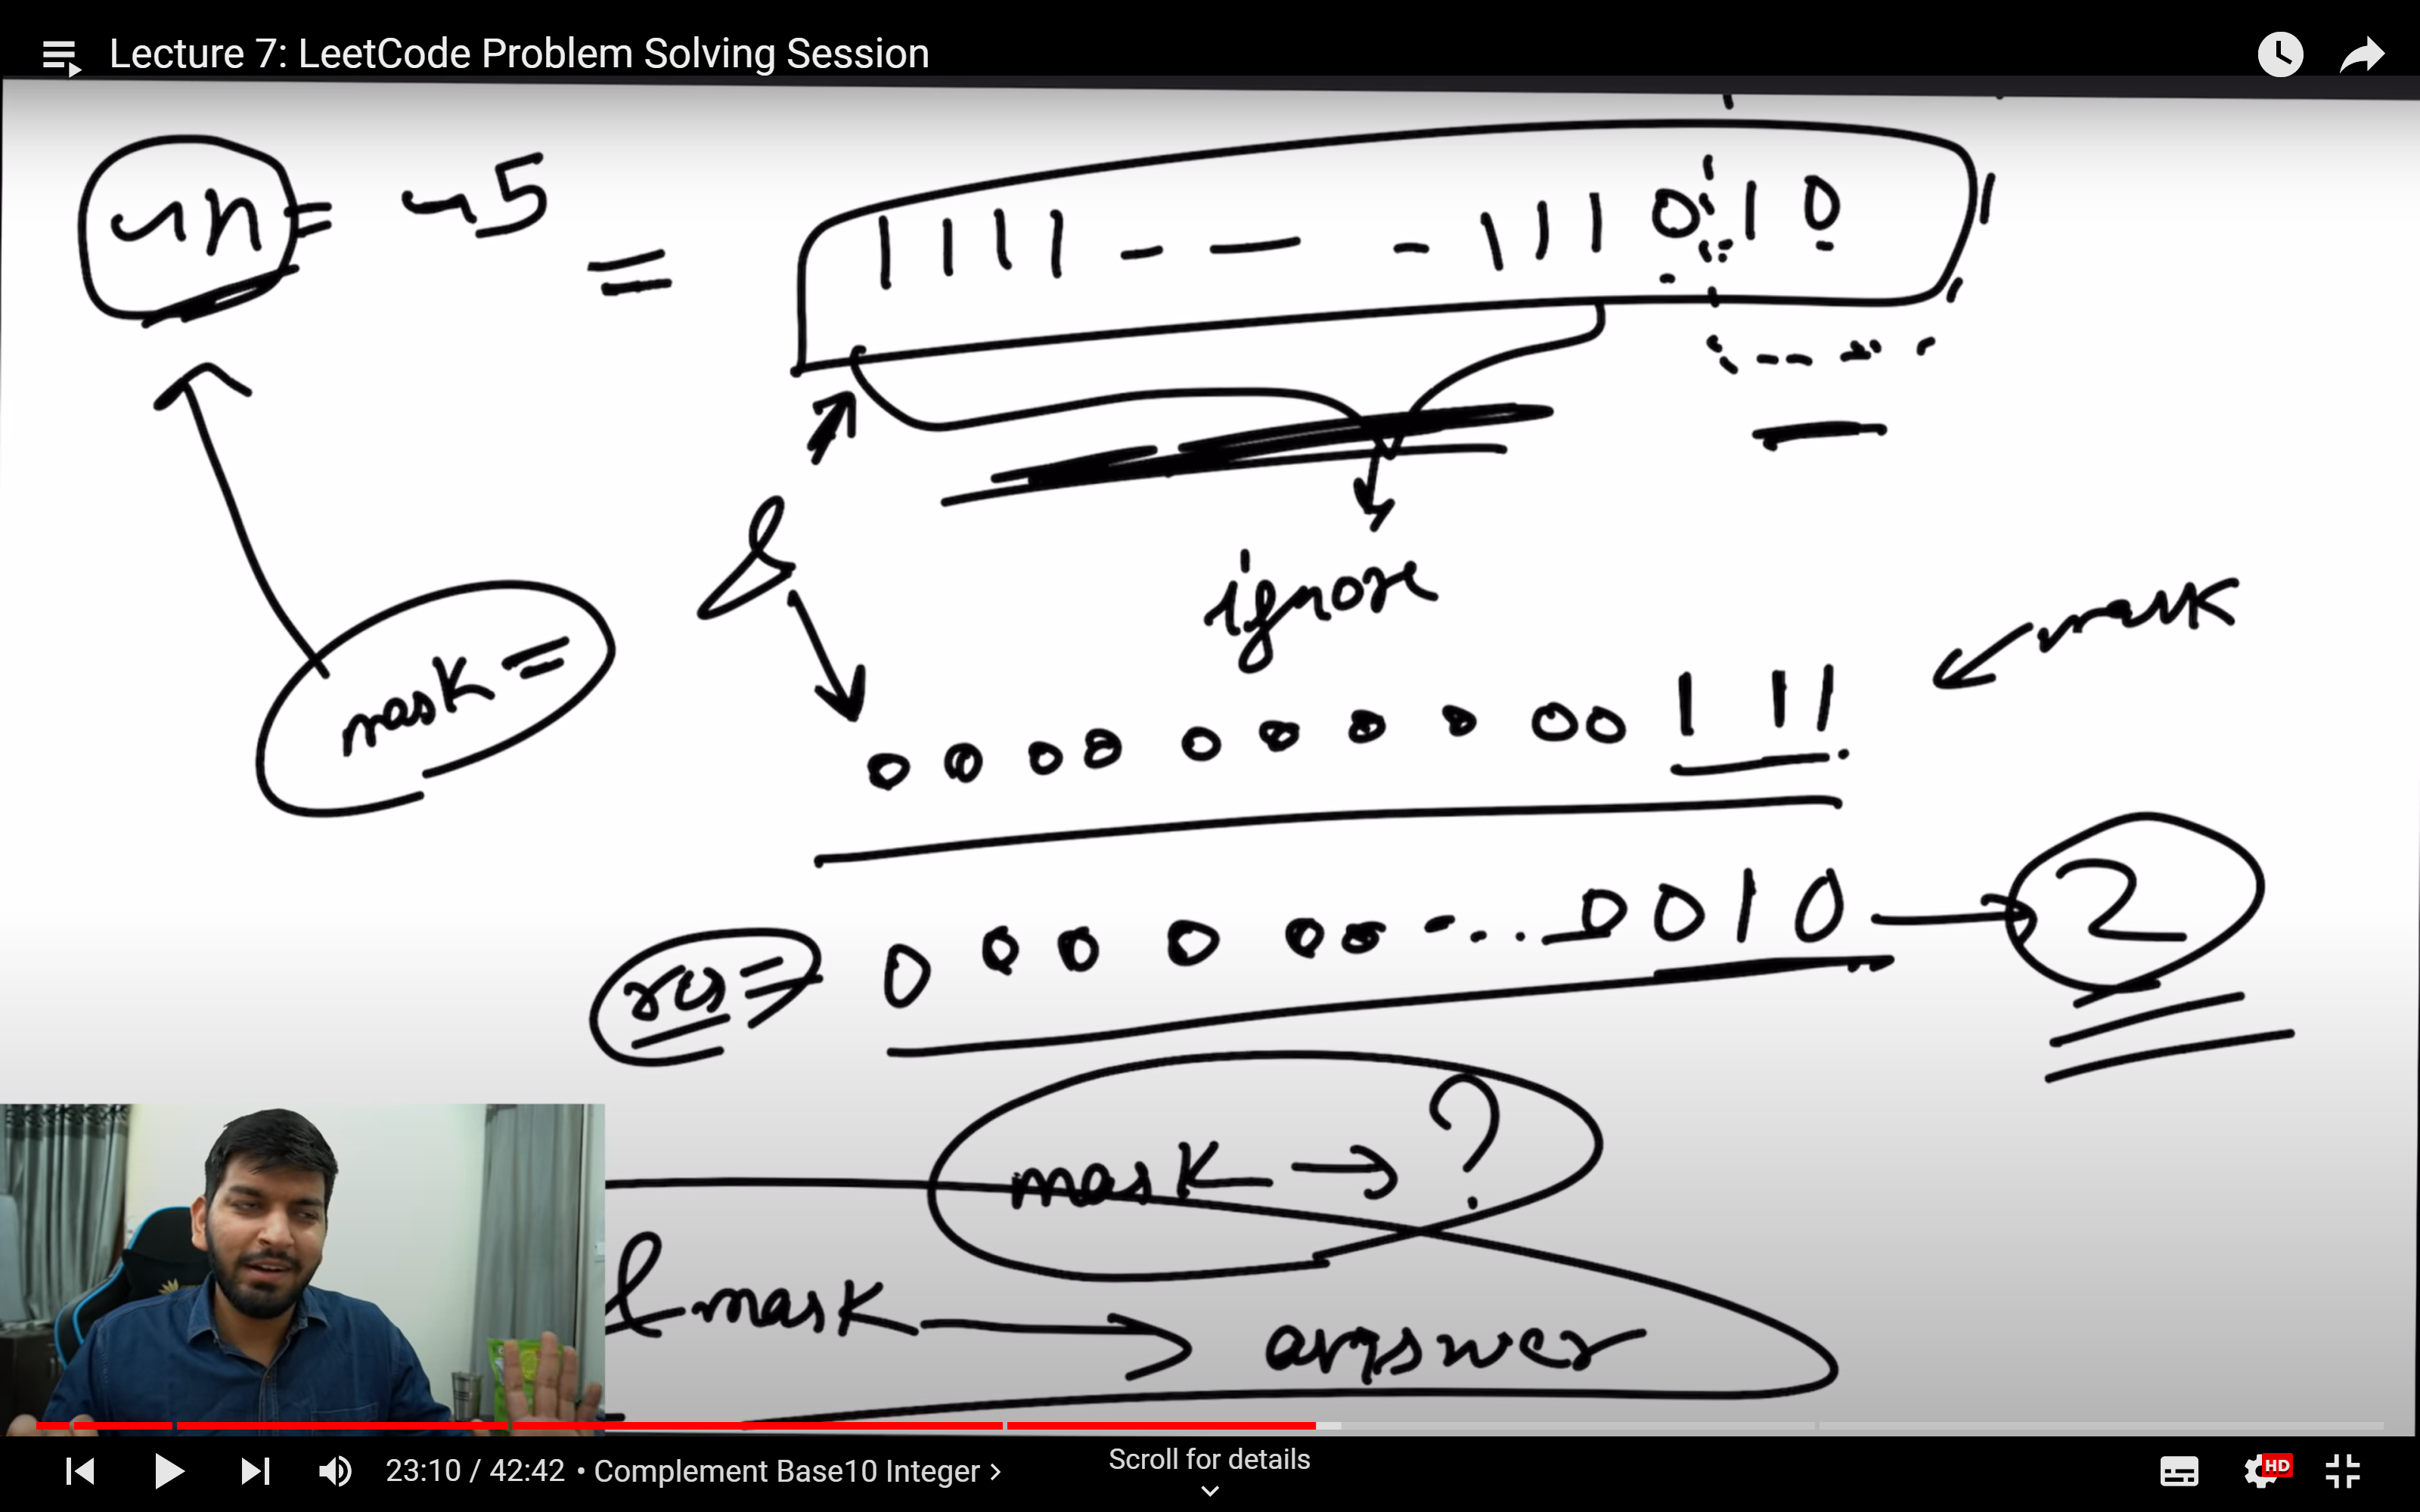 Lecture 7: LeetCode Problem Solving Session
~n = ~5 = 1111 - — - 1110 10
ignore
&
mask =
mask
0 0 0 0 0 0 0 0 00 1 11
res = 0 0 0 0 00 -... 0010 → 2
mask → ?
& mask → answer
23:10 / 42:42 • Complement Base10 Integer >
Scroll for details
HD